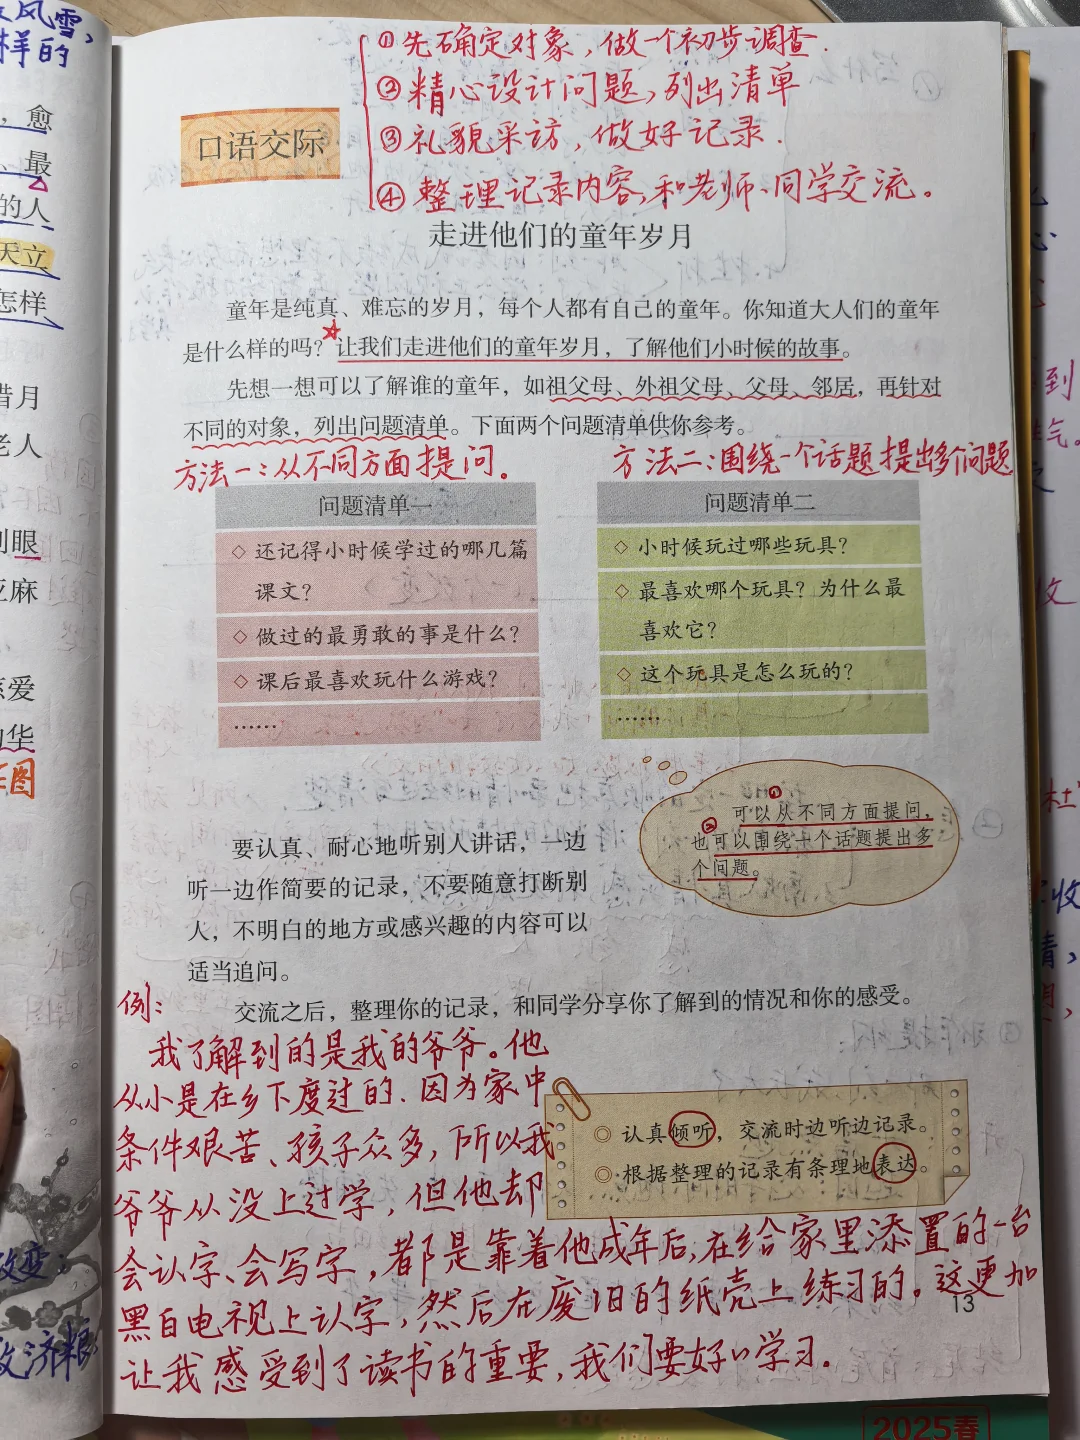 风雪，
样的
，愈
最
的人
天立
怎样
腊月
老人
眼
亚麻
慈爱
华
改变；
①先确定对象，做一个初步调查.
②精心设计问题，列出清单
③礼貌采访，做好记录.
④整理记录内容，和老师、同学交流。
口语交际
走进他们的童年岁月
童年是纯真、难忘的岁月，每个人都有自己的童年。你知道大人们的童年
是什么样的吗？让我们走进他们的童年岁月，了解他们小时候的故事。
先想一想可以了解谁的童年，如祖父母、外祖父母、父母、邻居，再针对
不同的对象，列出问题清单。下面两个问题清单供你参考。
方法一：从不同方面提问。
方法二：围绕一个话题提出多个问题
问题清单一
◇ 还记得小时候学过的哪几篇
课文？
◇ 做过的最勇敢的事是什么？
◇ 课后最喜欢玩什么游戏？
……
问题清单二
◇ 小时候玩过哪些玩具？
◇ 最喜欢哪个玩具？为什么最
喜欢它？
◇ 这个玩具是怎么玩的？
……
①
可以从不同方面提问，
②
也可以围绕一个话题提出多
个问题。
要认真、耐心地听别人讲话，一边
听一边作简要的记录，不要随意打断别
人，不明白的地方或感兴趣的内容可以
适当追问。
交流之后，整理你的记录，和同学分享你了解到的情况和你的感受。
◎ 认真倾听，交流时边听边记录。
◎ 根据整理的记录有条理地表达。
例：
我了解到的是我的爷爷。他
从小是在乡下度过的．因为家中
条件艰苦、孩子众多，所以我
爷爷从没上过学，但他却
会认字、会写字，都是靠着他成年后，在给家里添置的一台
黑白电视上认字，然后在废旧的纸壳上练习的。这更加
让我感受到了读书的重要，我们要好好学习.
13
到
气。
收
收
2025春